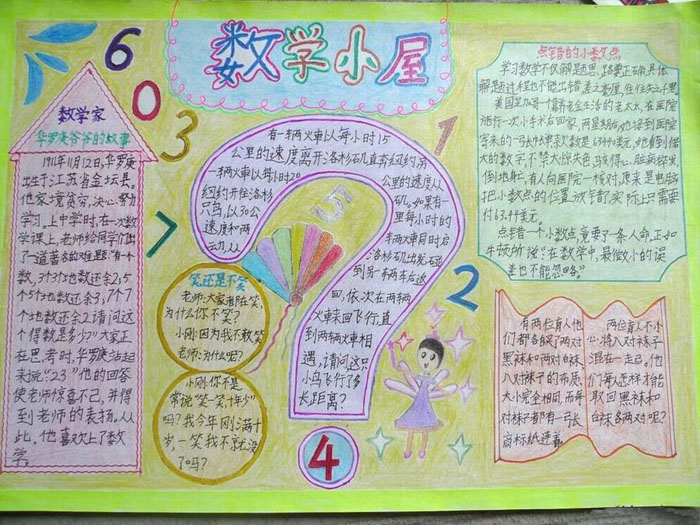 数学小屋
6
0
3
7
1
2
5
4
数学家
华罗庚爷爷的故事
1910年11月12日,华罗庚
出生于江苏省金坛县。
他家境贫穷,决心努力
学习。上中学时,在一次数
学课上,老师给同学们出
了一道著名的难题:"有一个
数,3个3个地数还余2;5
个5个地数还余3;7个7
个地数还余2,请问这
个得数是多少?"大家正
在思考时,华罗庚站起
来说:"23"他的回答
使老师惊喜不已,并得
到老师的表扬。从
此,他喜欢上了数
学。
有一辆火車以每小时15
公里的速度离开洛杉矶直奔纽约,另
一辆火車以每小时20
公里的速度从
纽约开往洛杉
矶。如果有一
只鸟,以30公
里每小时的
速度和两
辆火車同时启
洛杉矶出发,碰
到另一辆车后返
回,依次在两辆
火車来回飞行,直
到两辆火車相
遇,请问这只
小鸟飞行了多
长距离?
笑还是不笑
老师:大家都在笑,
为什么你不笑?
小刚:因为我不敢笑
老师:为什么呢?
小刚:你不是
常说"笑一笑,十年少"
吗?我今年刚满十
岁,一笑我不就没
了吗?
点错的小数点
学习数学不仅解题思路要正确,具体
解题过程也不能出错,差之毫厘,往往失之千里。
美国芝加哥一个靠养老金生活的老太太,在医院
施行一次小手术后回家,两星期后,她接到医院
寄来的一张帐单,款数是63440美元,她看到偌
大的数字,不禁大惊失色,骇得心脏病猝发,
倒地身亡。后来,有人向医院一核对,原来是电脑
把小数点的位置放错了,实际上只需要
付63.44美元。
点错一个小数点,竟要了一条人命。正如
牛顿所说:"在数学中,最微小的误
差也不能忽略。"
有两位盲人,他
们都各买了两对
黑袜和两对白袜,
八对袜子的布质、
大小完全相同,而每
对袜子都有一张
商标纸连着。
两位盲人不小
心将八对袜子
混在一起。他
们每人怎样才能
取回黑袜和
白袜各两对呢?